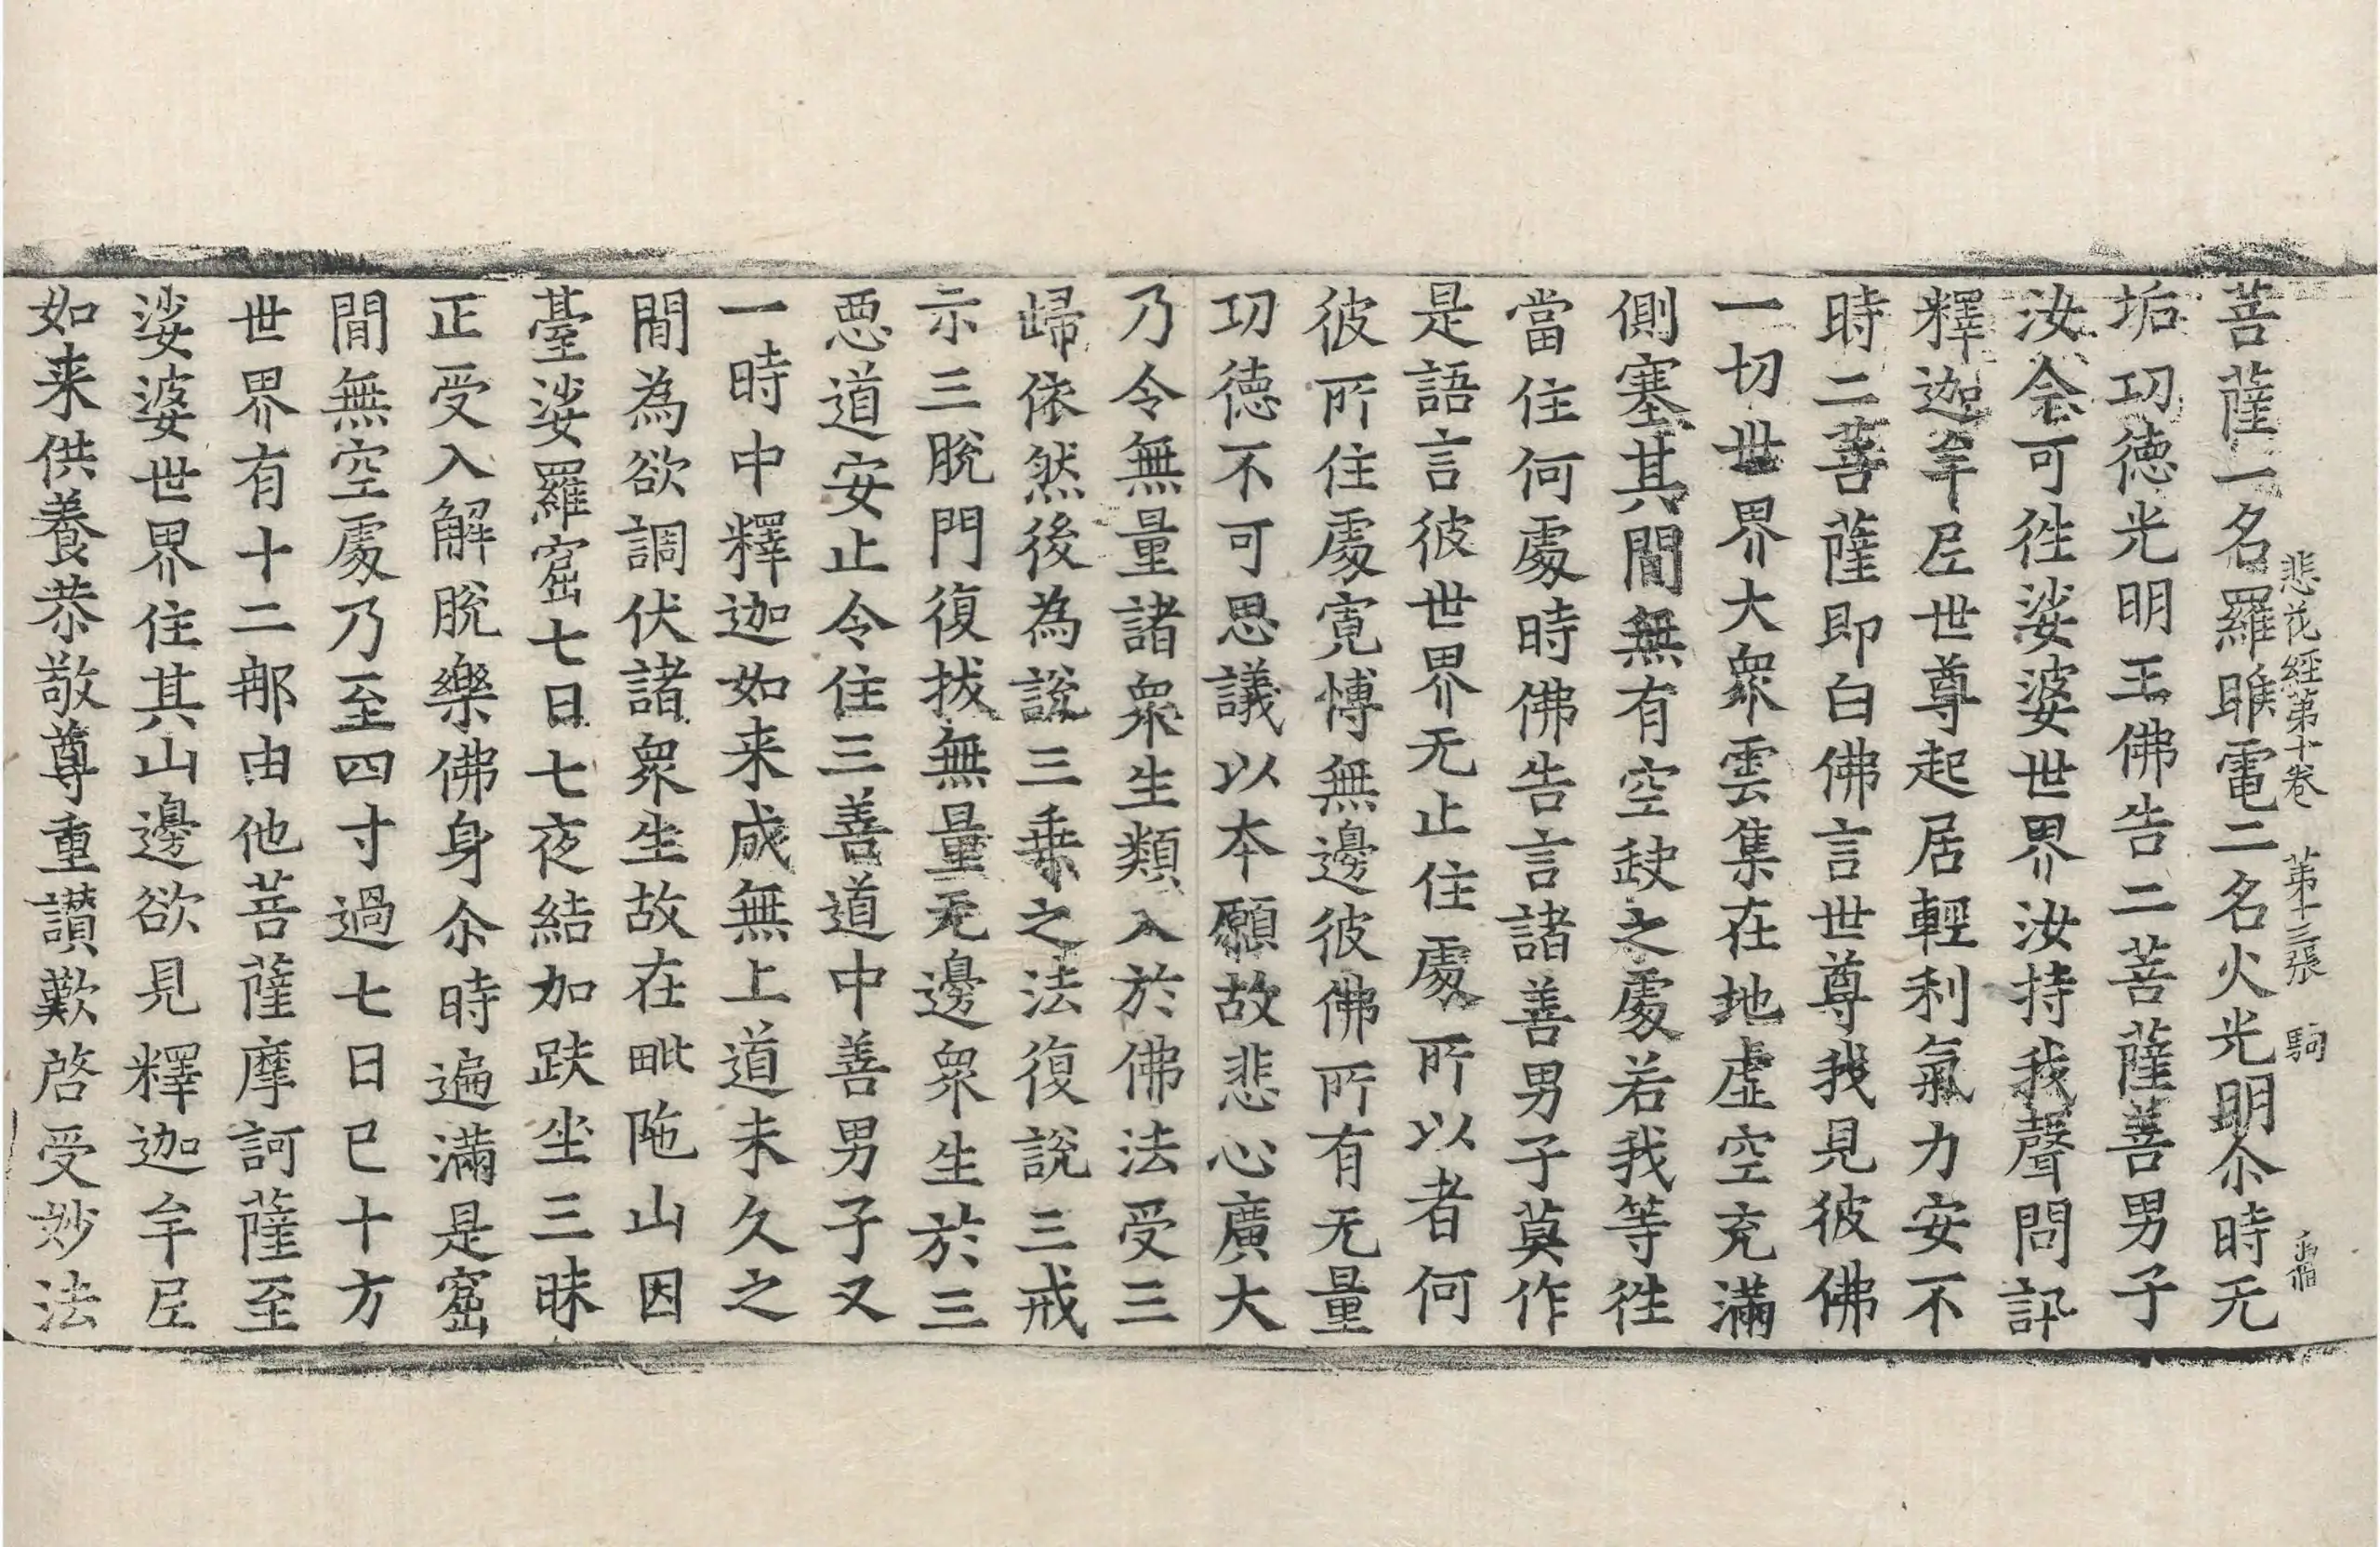 悲花經第十卷 第十三張 駒
菩薩一名羅睺電二名火光明尒時无
垢㓛德光明王佛告二菩薩善男子
汝今可徃娑婆世界汝持我聲問訊
釋迦牟尼世尊起居輕利氣力安不
時二菩薩即白佛言世尊我見彼佛
一切世界大衆雲集在地虛空充滿
側塞其閒無有空缺之處若我等徃
當住何處時佛告言諸善男子莫作
是語言彼世界无止住處所以者何
彼所住處寬博無邊彼佛所有无量
㓛德不可思議以本願故悲心廣大
乃令無量諸衆生類入於佛法受三
歸依然後為說三乗之法復說三戒
示三脫門復拔無量无邊衆生於三
惡道安止令住三善道中善男子又
一時中釋迦如来成無上道未久之
閒為欲調伏諸衆生故在毗陁山因
臺娑羅窟七日七夜結加趺坐三昧
正受入解脫樂佛身尒時遍滿是窟
閒無空處乃至四寸過七日已十方
世界有十二那由他菩薩摩訶薩至
娑婆世界住其山邊欲見釋迦牟尼
如来供養恭敬尊重讃歎啓受妙法